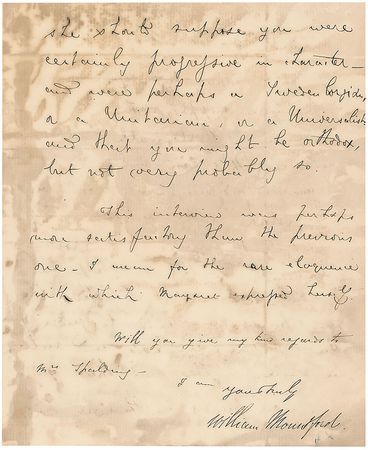 she should suppose you were
certainly progressive in character –
and were perhaps a Swedenborgian,
or a Unitarian, or a Universalist
and that you might be orthodox,
but not very probably so.
This interview was perhaps
more satisfactory than the previous
one – I mean for the rare eloquence
with which Margaret expressed herself.
Will you give my kind regards to
Mrs Spalding –
I am
yours truly
William Mountford.